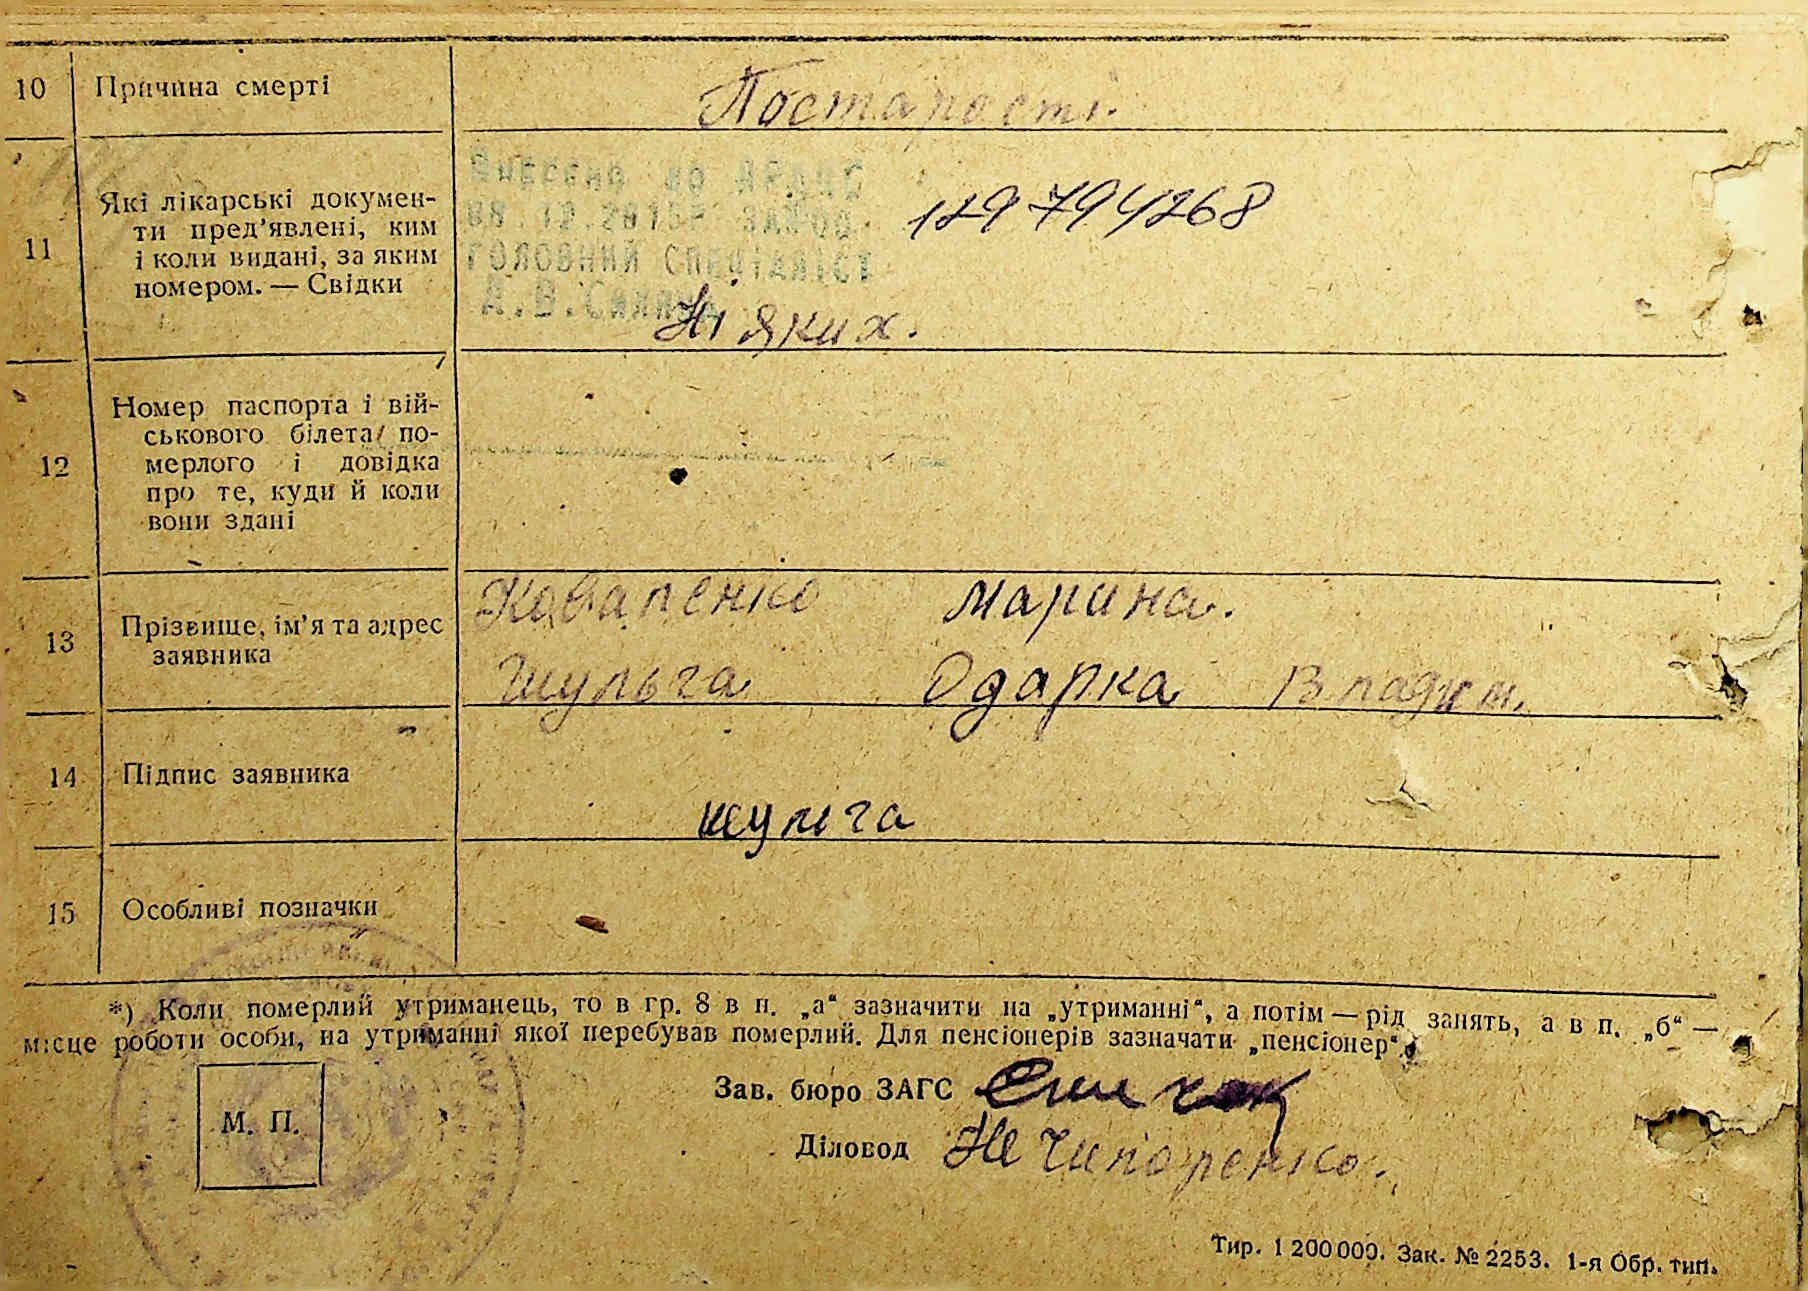 10 Причина смерті Постарості.
11 Які лікарські докумен-
ти пред’явлені, ким
і коли видані, за яким
номером. — Свідки
Внесено до
129794268
ГОЛОВНИЙ СПЕЦІАЛІСТ
А.В.
Ні яких.
12 Номер паспорта і вій-
ськового білета по-
мерлого і довідка
про те, куди й коли
вони здані
13 Прізвище, ім’я та адрес
заявника
Коваленко Марина.
Шульга Одарка
14 Підпис заявника
шульга
15 Особливі позначки
*) Коли померлий утриманець, то в гр. 8 в п. „а“ зазначити на „утриманні“, а потім — рід занять, а в п. „б“ —
місце роботи особи, на утриманні якої перебував померлий. Для пенсіонерів зазначати „пенсіонер“.
Зав. бюро ЗАГС
М. П.
Діловод Нечипоренко.
Тир. 1 200 000. Зак. № 2253. 1-я Обр. тип.